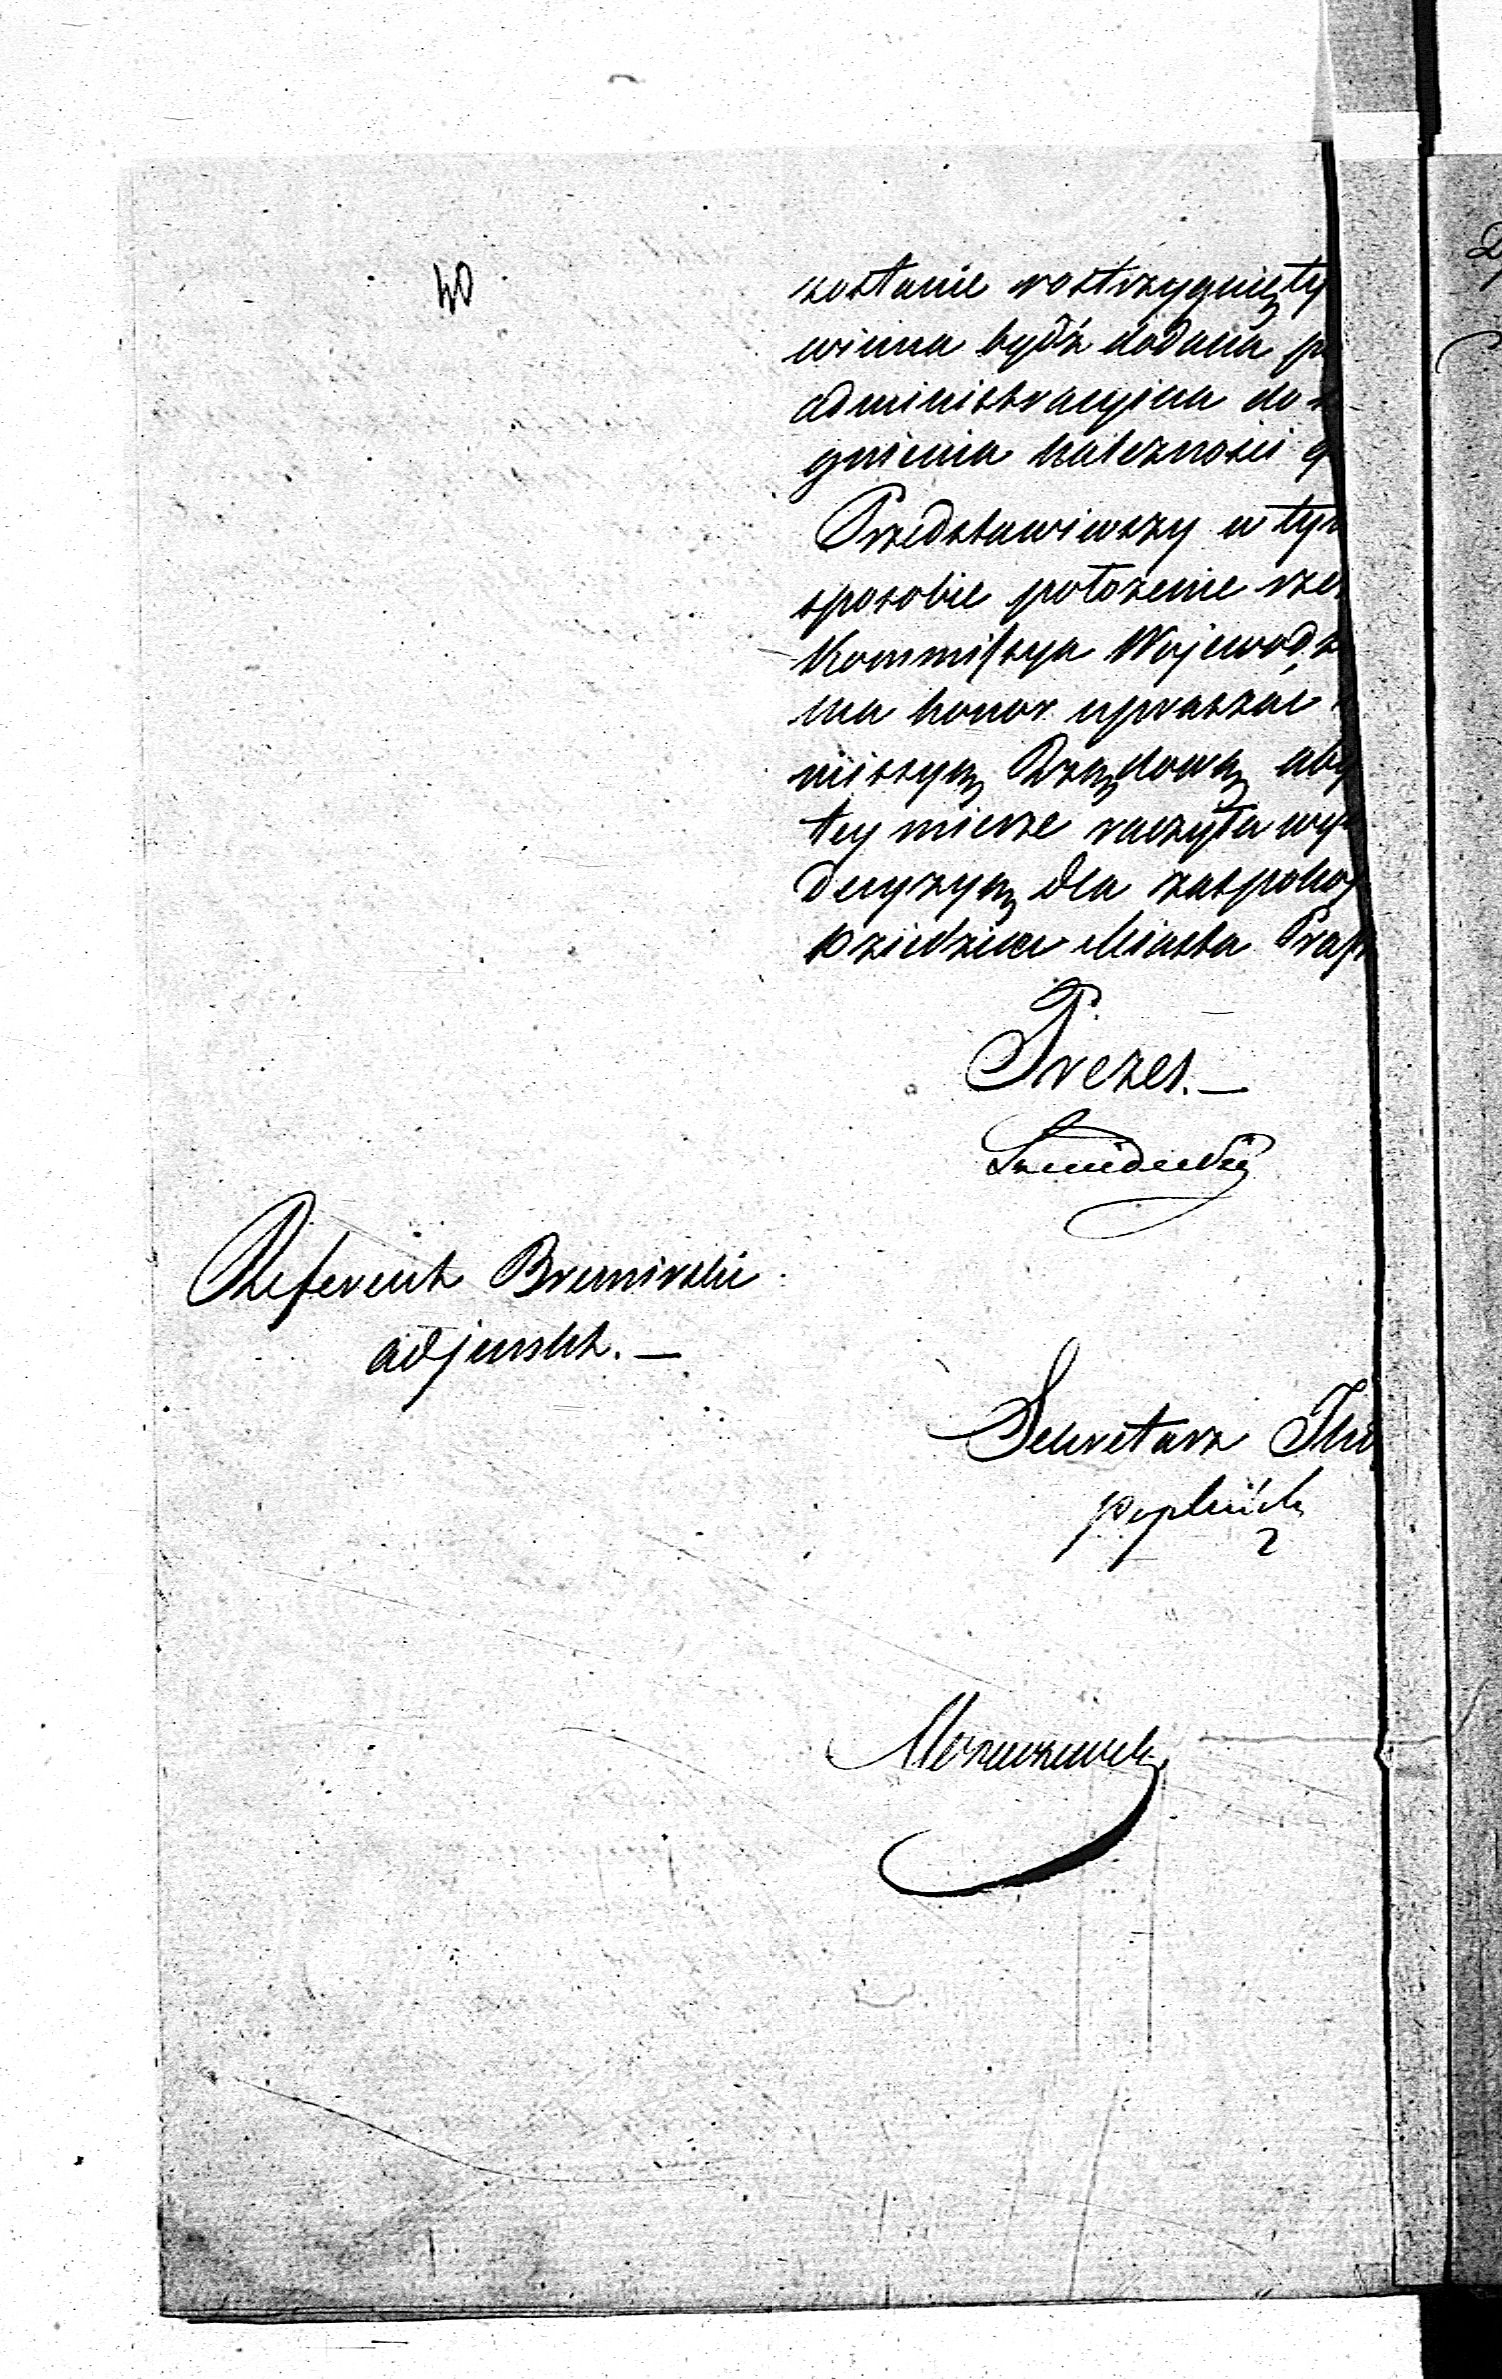 40
zostanie rostrzygnięty
winna bydź dodana p
administracyina do
gnienia należności g
Przedstawiwszy w tym
sposobie położenie rze
Kommissya Wojewodz
ma honor upraszać
missyą Rządową aby
tey mierze raczyła wy
decyzyą dla zaspoko
Dziedzica Miasta Pra
Prezes.—
Referent
adjunkt.—
Sekretarz